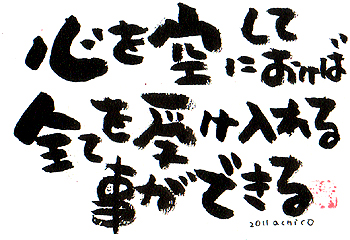 心を空にしておけば
全てを受け入れる
事ができる
2011 achiro